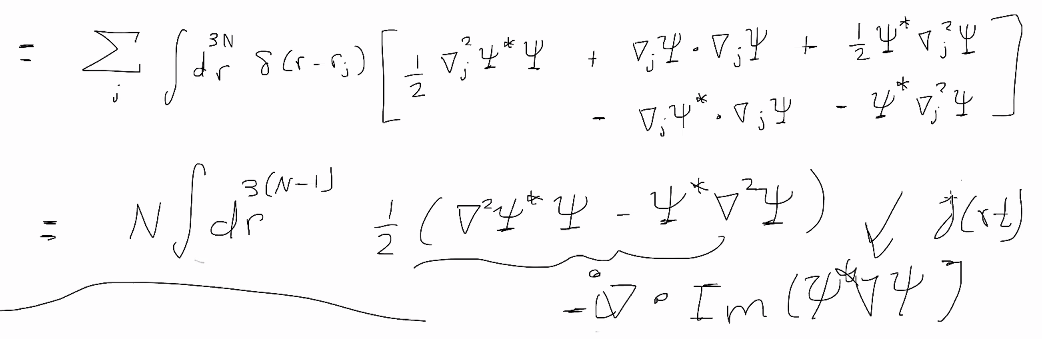 = ∑_j ∫ dr^{3N} δ(r - r_j) [ 1/2 ∇_j^2 Ψ* Ψ + ∇_jΨ · ∇_jΨ + 1/2 Ψ* ∇_j^2 Ψ
- ∇_jΨ* · ∇_jΨ - Ψ* ∇_j^2 Ψ ]
= N ∫ dr^{3(N-1)} 1/2 ( ∇^2Ψ* Ψ - Ψ* ∇^2Ψ ) ✓ j(rt)
-i∇ · Im (Ψ*∇Ψ]